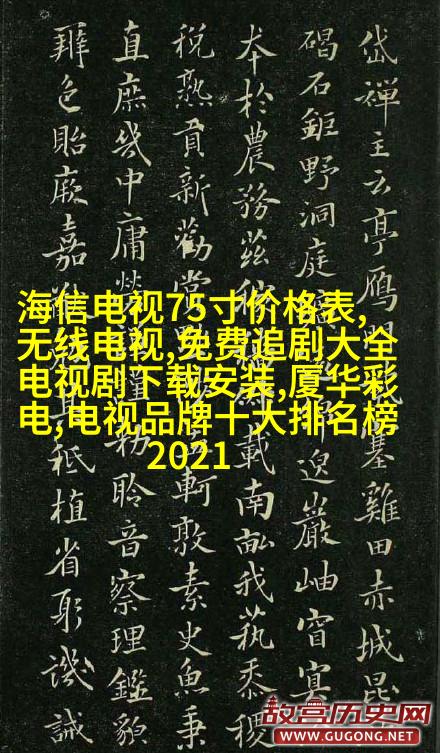 岱禪主云亭鴈門塞雞田赤城昆
碣石鉅野洞庭邈巖岫窅冥
本於農務茲稼載南畝我蓺黍稷
稅熟貢新勸賞軻敦素史魚秉
直庶幾中庸勞謹勑聆音察理鑑貌
辨色貽厥嘉猷其祗植省躬譏誡
海信电视75寸价格表,
无线电视,免费追剧大全
电视剧下载安装,厦华彩
电,电视品牌十大排名榜
2021
故宫历史网
WWW.GUGONG.NET